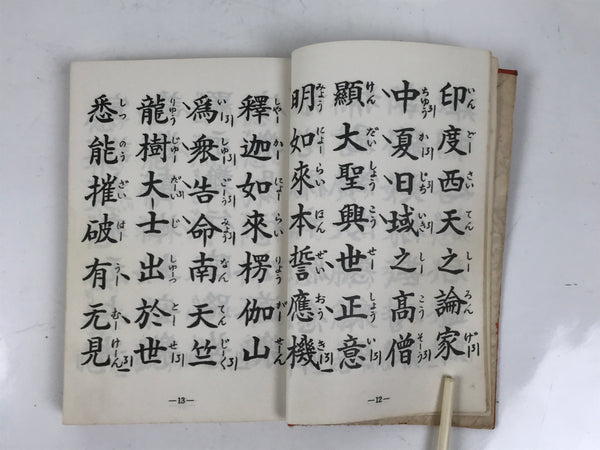 印度西天之論家
中夏日域之高僧
顯大聖興世正意
明如來本誓應機
—12—
釋迦如來楞伽山
爲衆告命南天竺
龍樹大士出於世
悉能摧破有无見
—13—